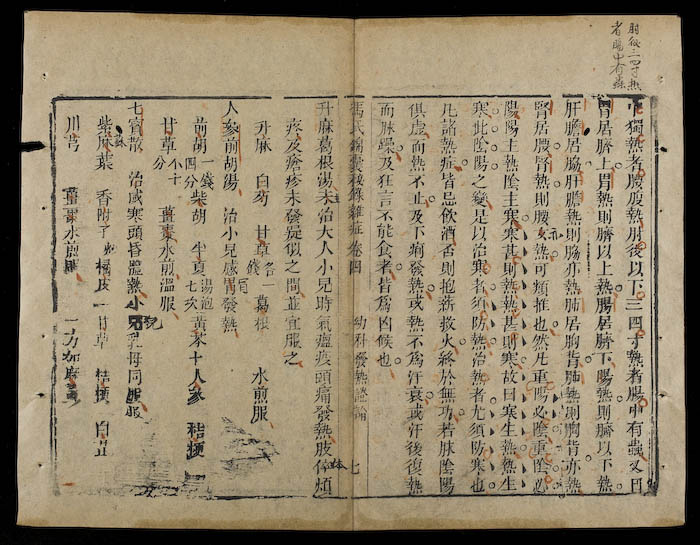 肘後三四寸熱
者腸中有蟲
中獨熱者腹腹熱肘後以下三四寸熱者腸中有蟲又曰
胃居臍上胃熱則臍以上熱腸居臍下腸熱則臍以下熱
肝膽居脇肝膽熱則脇亦熱肺居胸背肺熱則胸背亦熱
腎居腰腎熱則腰亦熱可類推也然凡重陽必陰重陰必
陽陽主熱陰主寒寒甚則熱熱甚則寒故曰寒生熱熱生
寒此陰陽之變是以治寒者須防熱治熱者尤須防寒也
凡諸熱症皆忌飲酒否則抱薪救火終於無功若脉陰陽
俱虛而熱不止及下痢發熱或熱不為汗衰或汗後復熱
而脉躁及狂言不能食者皆為凶候也
馮氏錦囊秘錄雜症卷四 幼科發熱證論 七
升麻葛根湯 治大人小兒時氣瘟疫頭痛發熱肢体煩
疼及瘡疹未發疑似之間並宜服之
升麻 白芍 甘草 各一錢 葛根 水煎服
人參前胡湯 治小兒感冒發熱
前胡 一錢四分 柴胡 半夏 湯泡七次 黃芩 十 人參 桔梗
甘草 分 薑棗水煎溫服
七寶散 治感寒頭昏體熱小兒乳母同服
紫蘇葉 香附 橘皮 甘草 桔梗 白芷
川芎 薑棗水煎服 一方加麻黃